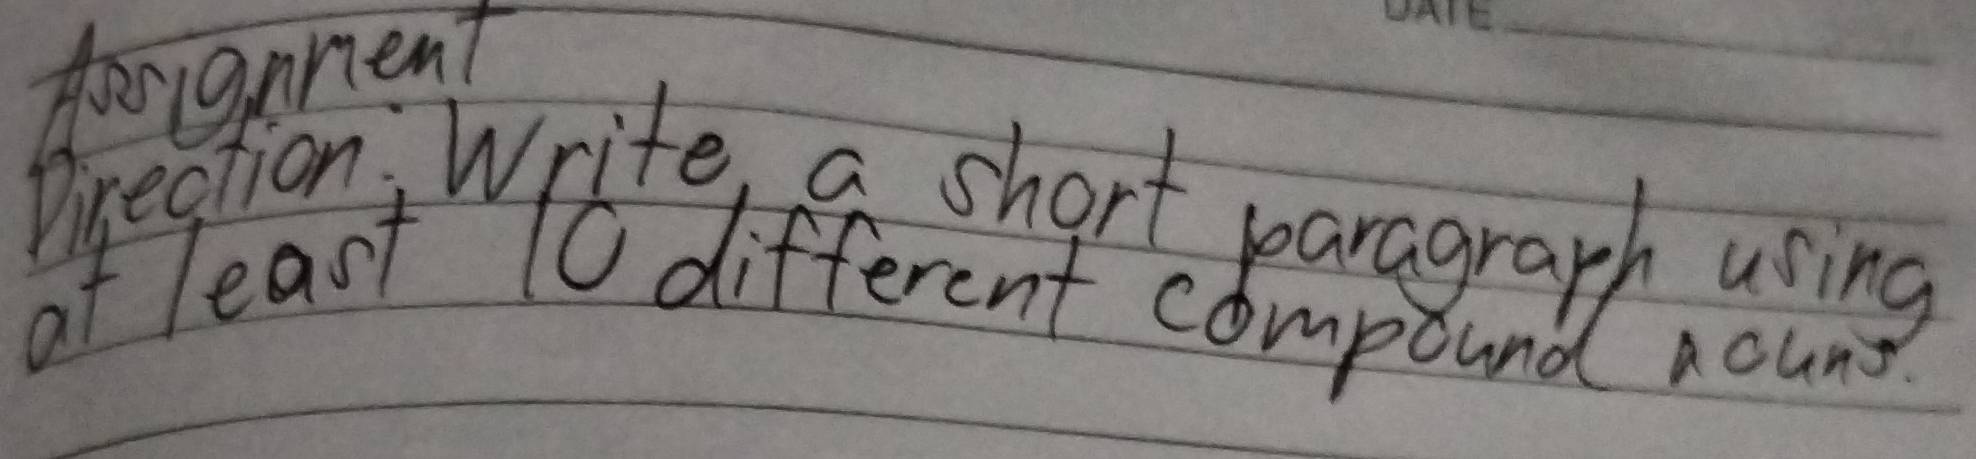 DATE
Assignment
Direction: Write a short paragraph using
at least 10 different compound nouns.